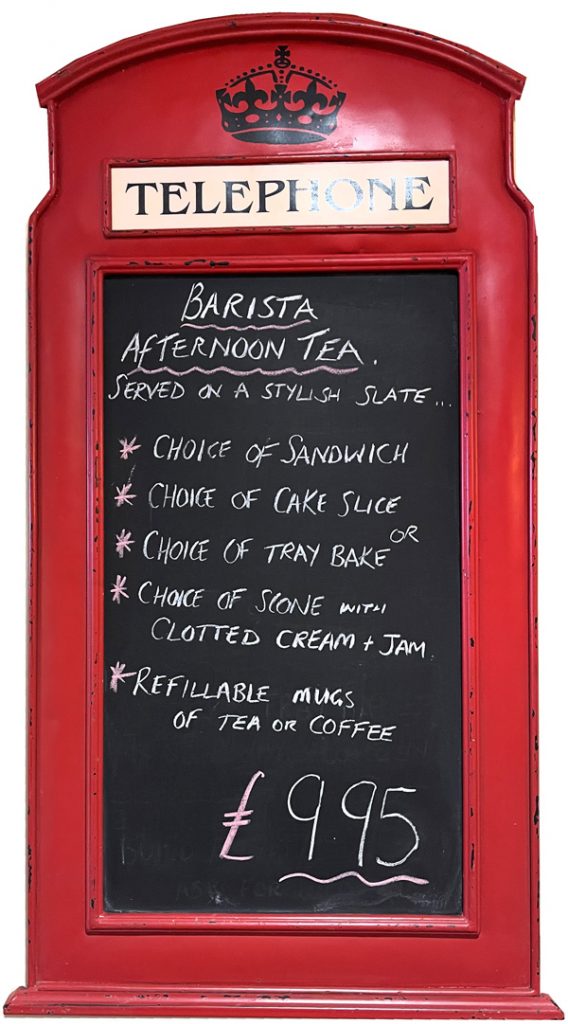 TELEPHONE
BARISTA
AFTERNOON TEA.
SERVED ON A STYLISH SLATE...
* CHOICE OF SANDWICH
* CHOICE OF CAKE SLICE
* CHOICE OF TRAY BAKE OR
* CHOICE OF SCONE WITH
CLOTTED CREAM + JAM.
* REFILLABLE MUGS
OF TEA OR COFFEE
£ 9.95